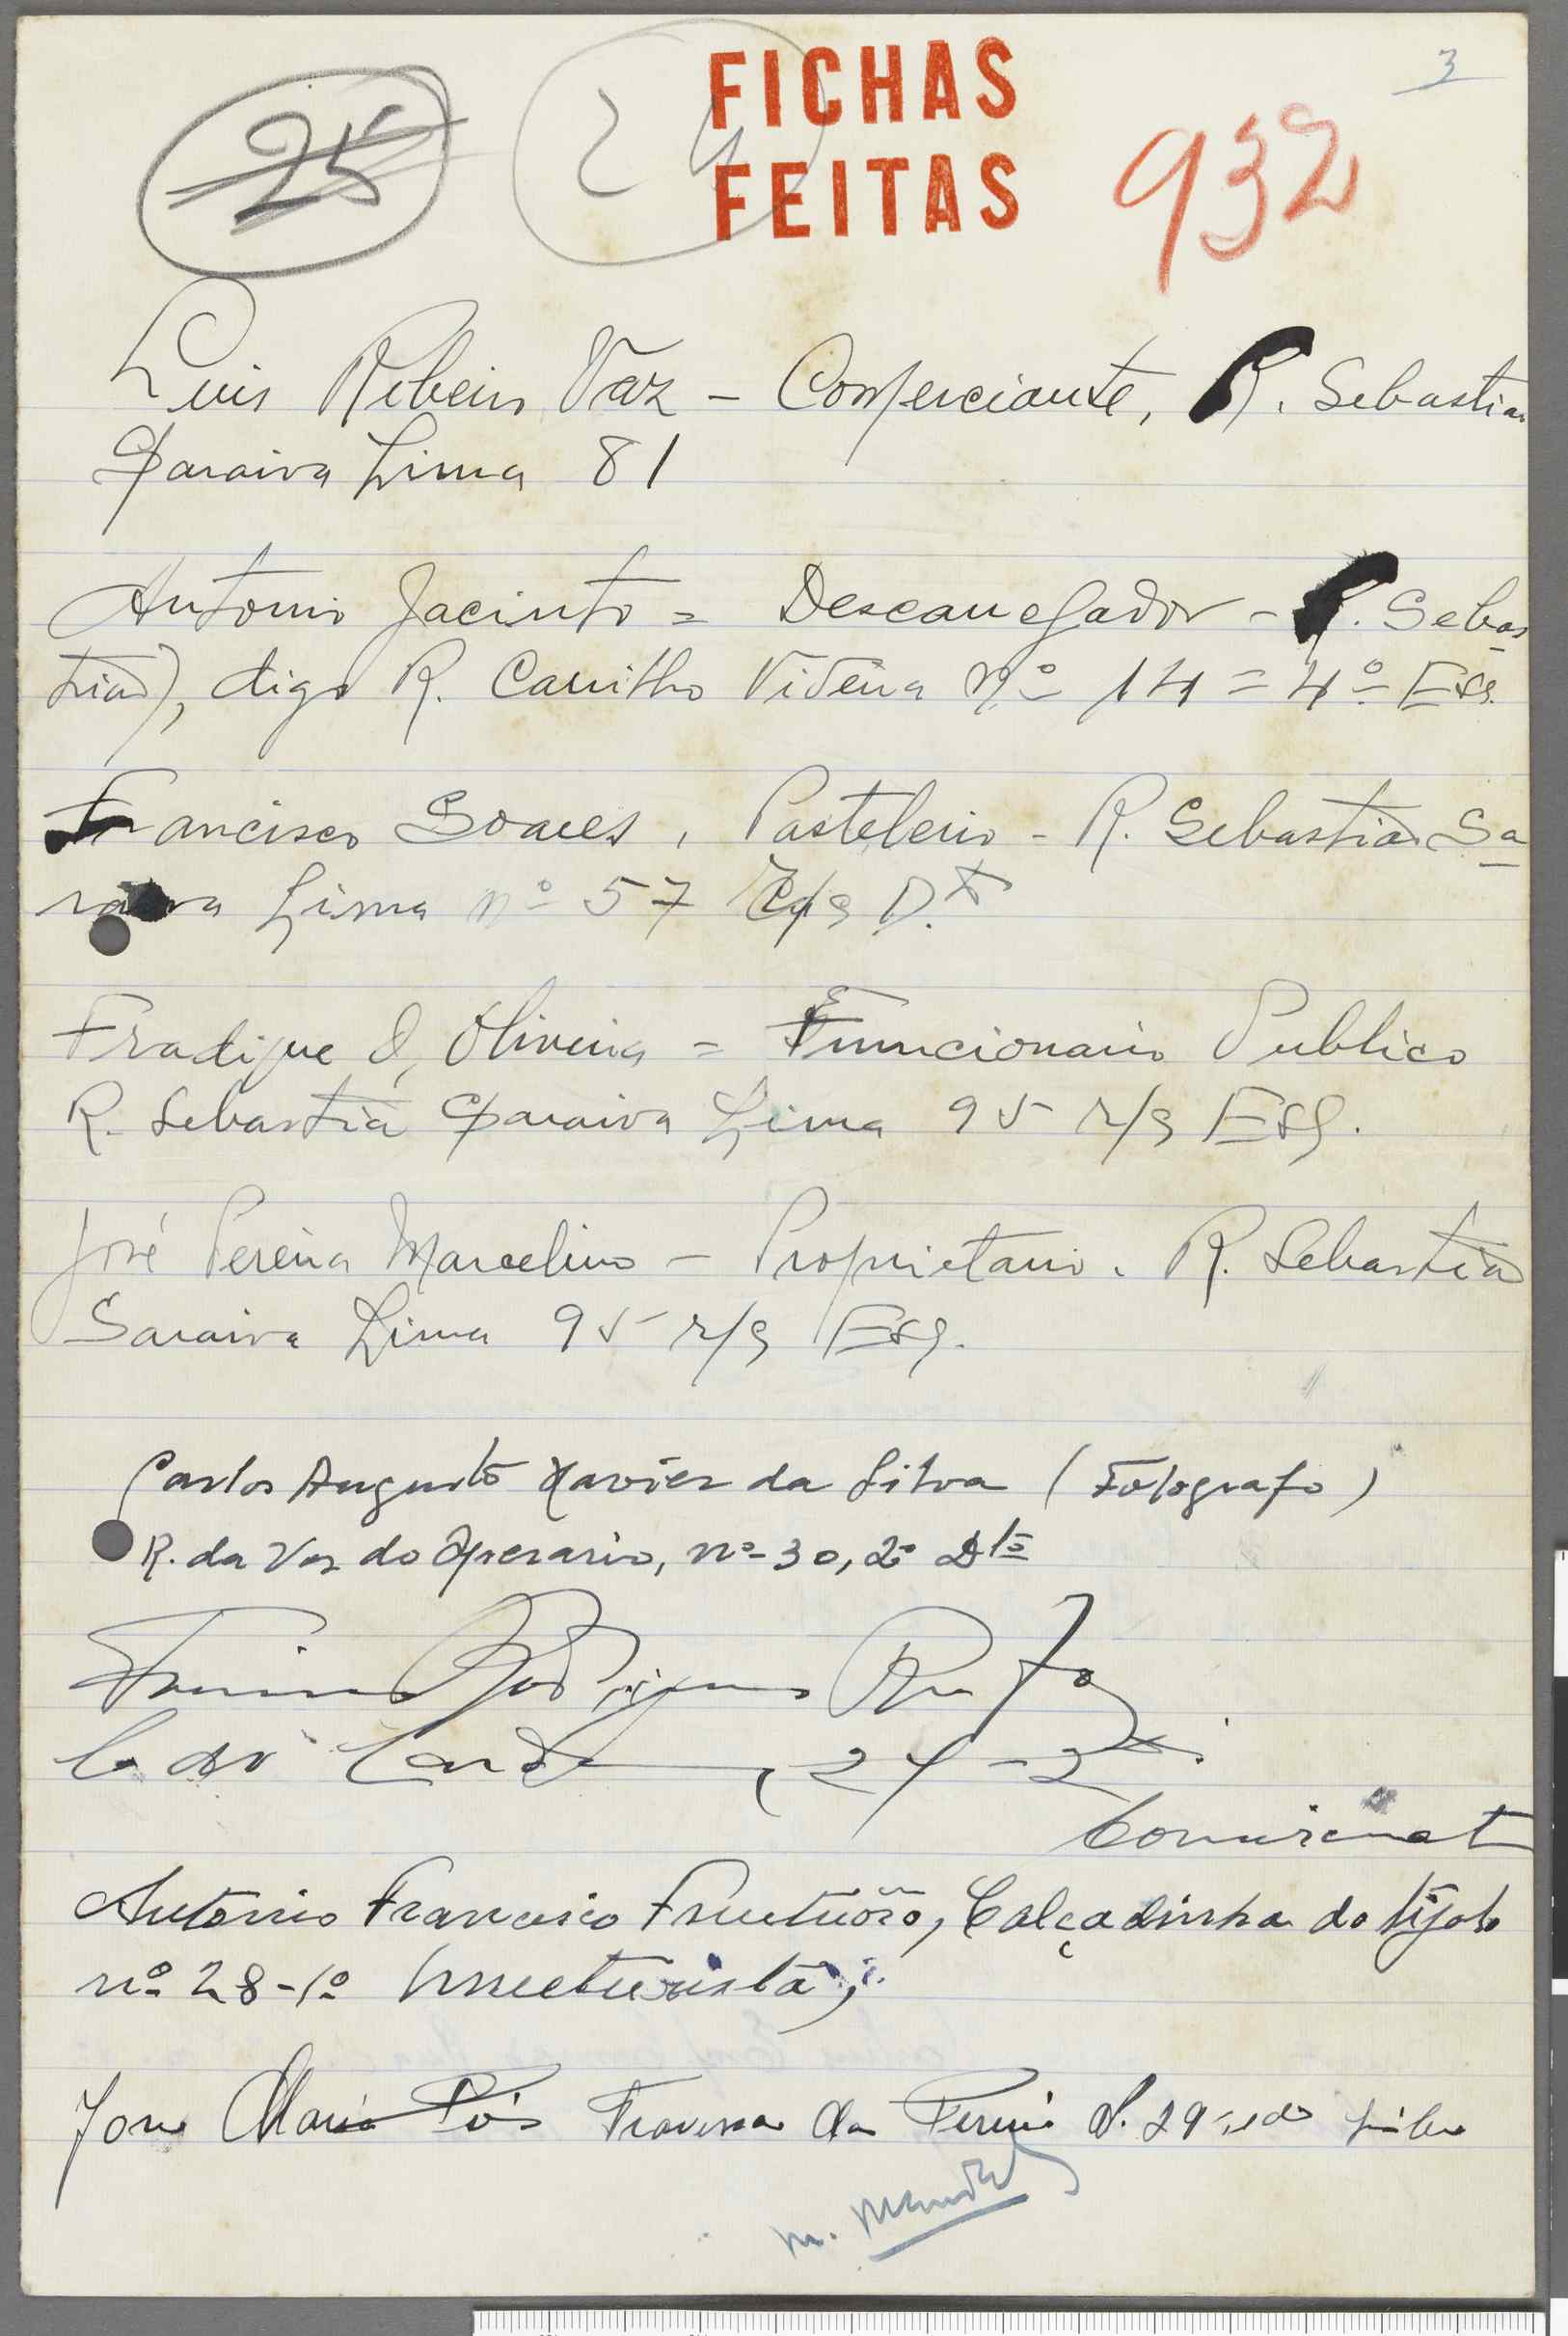 3
25
24
FICHAS
FEITAS
932
Luis Ribeiro Vaz - Comerciante, R. Sebastião
Saraiva Lima 81
Antonio Jacinto = Descarregador - R. Sebas
tião), digo R. Carrilho Videira nº 14 = 4º Esq.
Francisco Soares, Pasteleiro - R. Sebastião Sa
raiva Lima nº 57 r/c D.to
Fradique d'Oliveira = Funcionario Publico
R. Sebastião Saraiva Lima 95 r/c Esq.
José Pereira Marcelino - Proprietario. R. Sebastião
Saraiva Lima 95 r/c Esq.
Carlos Augusto Xavier da Silva (Fotografo)
R. da Voz do Operario, nº 30, 2º Dto
Rodrigues
24-2
António Francisco Fructuôso, Calçadinha do tijolo
nº 28-1º
José Maria Travessa da 29
M.